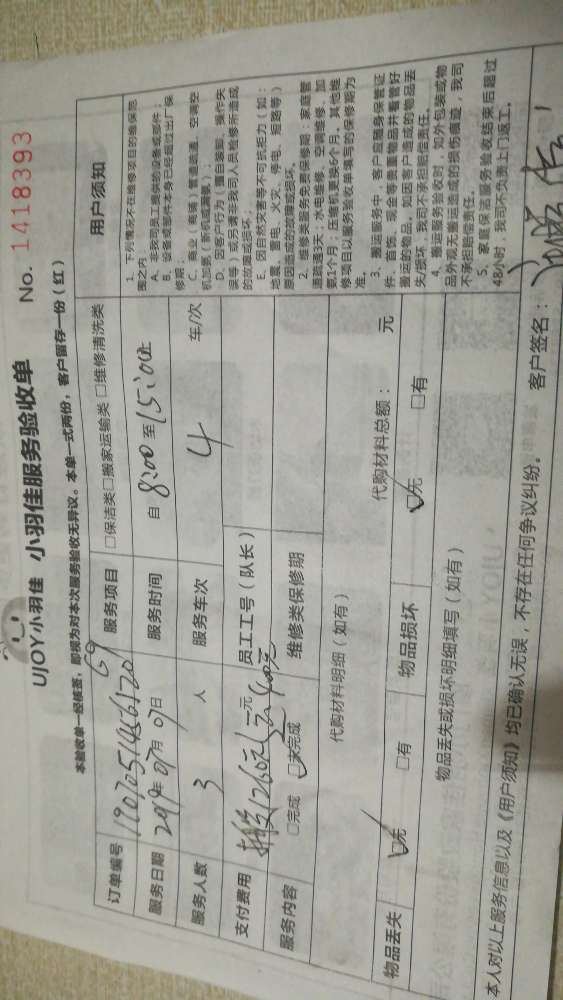 UJOY小羽佳 小羽佳服务验收单 No. 1418393
本验收单一经核签，即视为对本次服务验收无异议。本单一式两份，客户留存一份（红）
订单编号 服务项目 □保洁类□搬家运输类 □维修清洗类
服务日期 2019年07月07日 服务时间 自 8:00 至 15:00止
服务人数 3 人 服务车次 4 车/次
支付费用 元 员工工号（队长）
服务内容 □完成 □未完成 维修类保修期
代购材料明细（如有） 代购材料总额： 元
物品丢失 □无 □有 物品损坏 □无 □有
物品丢失或损坏明细填写（如有）
用户须知
1、下列情况不在维修项目的维保范
围之内：
A、非我司员工提供的设备或部件；
B、设备或部件本身已经超过出厂保
修期；
C、商业（商铺）管道疏通、空调空
机加氨（新机或漏氨）；
D、因客户行为（擅自装卸、操作失
误等）或另请非我司人员检修所造成
的故障或损坏；
E、因自然灾害等不可抗拒力（如：
地震、雷电、火灾、停电、短路等）
原因造成的故障或损坏。
2、维修类服务免费保修期：家庭管
道疏通3天；水电维修、空调维修、加
氨1个月；压缩机更换6个月，其他维
修项目以服务验收单填写的保修期为
准。
3、搬运服务中，客户应随身保管证
件、首饰、现金等贵重物品并看管好
搬运的物品。如因客户造成的物品丢
失/损坏，我司不承担赔偿责任。
4、搬运服务验收时，如外包装或物
品外观无搬运造成的损伤痕迹，我司
不承担赔偿责任。
5、家庭保洁服务验收结束后超过
48小时，我司不负责上门返工。
本人对以上服务信息以及《用户须知》均已确认无误，不存在任何争议纠纷。 客户签名：